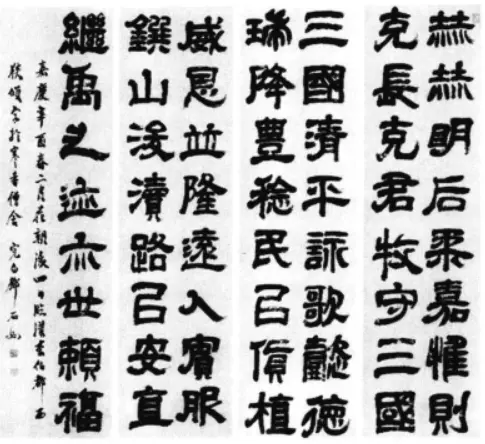 赫赫明后柔嘉惟則
克長克君牧守三國
三國清平詠歌懿德
瑞降豊稔民㠯貨植
威恩並隆遠人賓服
鐉山浚瀆路㠯安直
繼禹之迹亦世賴福
嘉慶辛酉春二月在陵日臨漢李伯都西
狹頌字於寒香僧舍 完白鄧石如